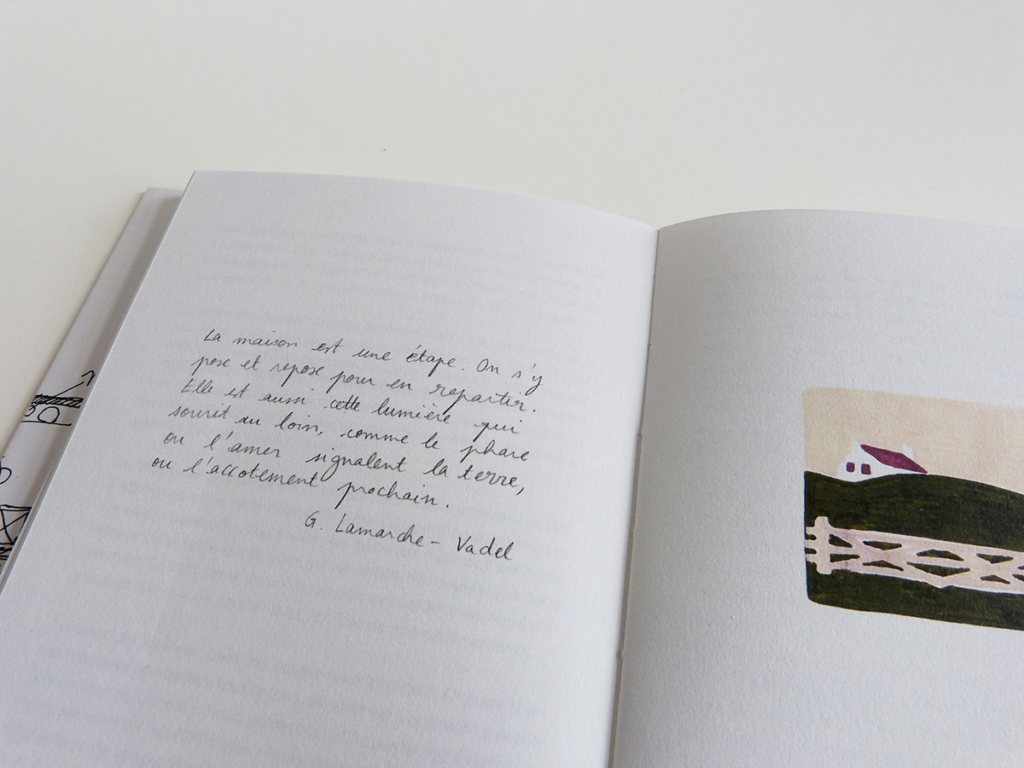 La maison est une étape. On s'y
pose et repose pour en repartir.
Elle est aussi cette lumière qui
sourit au loin, comme le phare
ou l'amer signalent la terre,
ou l'accotement prochain.
G. Lamarche-Vadel